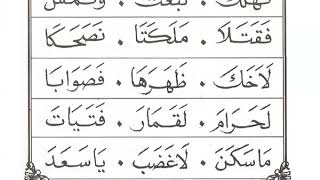 فَقَتَلَا • مَلَكَتَا • نَصَحَكَا
لَاَخَكَ • ظَهَرَهَا • فَصَوَابَا
لَحَرَامَ • لَقَمَارَ • فَتَيَاتَ
مَاسَكَنَ • لَاغَضَبَ • يَاسَعَدَ